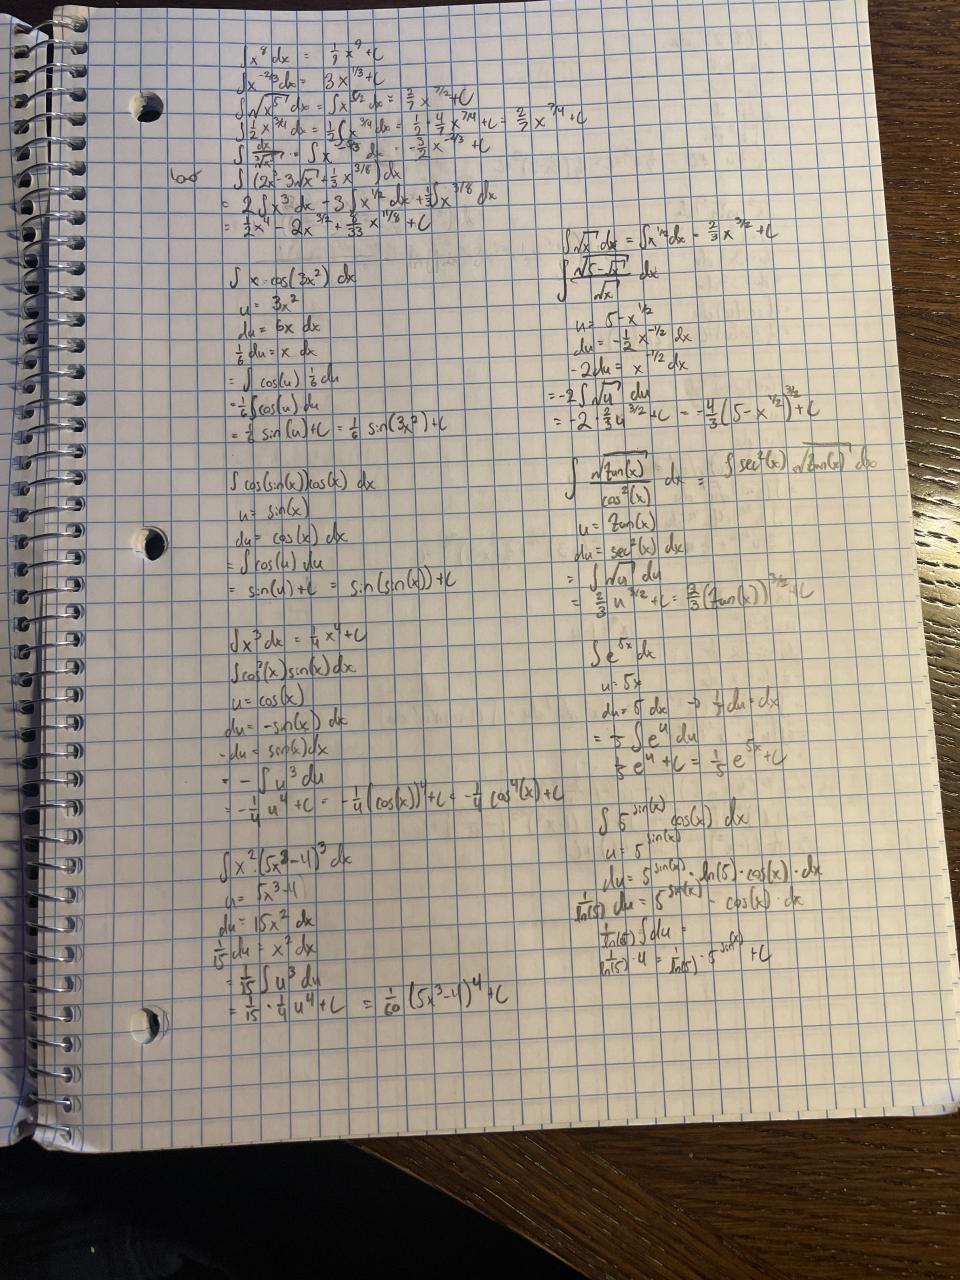 ∫x⁸ dx = 1/9 x⁹ + C
∫x^(-2/3) dx = 3x^(1/3) + C
∫√(x⁵) dx = ∫x^(5/2) dx = 2/7 x^(7/2) + C
∫1/2 x^(3/4) dx = 1/2 ∫x^(3/4) dx = 1/2 · 4/7 x^(7/4) + C = 2/7 x^(7/4) + C
∫ dx/ = ∫x^(-5/3) dx = -3/2 x^(-2/3) + C
∫(2x³ - 3√x + 1/3 x^(3/8)) dx
= 2∫x³ dx - 3∫x^(1/2) dx + 1/3∫x^(3/8) dx
= 1/2 x⁴ - 2x^(3/2) + 8/33 x^(11/8) + C
∫x·cos(3x²) dx
u = 3x²
du = 6x dx
1/6 du = x dx
= ∫cos(u) 1/6 du
= 1/6 ∫cos(u) du
= 1/6 sin(u) + C = 1/6 sin(3x²) + C
∫cos(sin(x))cos(x) dx
u = sin(x)
du = cos(x) dx
= ∫cos(u) du
= sin(u) + C = sin(sin(x)) + C
∫x³ dx = 1/4 x⁴ + C
∫cos³(x) sin(x) dx
u = cos(x)
du = -sin(x) dx
-du = sin(x) dx
= -∫u³ du
= -1/4 u⁴ + C = -1/4 (cos(x))⁴ + C = -1/4 cos⁴(x) + C
∫x²·(5x³-4)³ dx
u = 5x³-4
du = 15x² dx
1/15 du = x² dx
= 1/15 ∫u³ du
= 1/15 · 1/4 u⁴ + C = 1/60 (5x³-4)⁴ + C
∫√x dx = ∫x^(1/2) dx = 2/3 x^(3/2) + C
∫ √(5-√x)/√x dx
u = 5-x^(1/2)
du = -1/2 x^(-1/2) dx
-2du = x^(-1/2) dx
= -2∫√u du
= -2 · 2/3 u^(3/2) + C = -4/3 (5-x^(1/2))^(3/2) + C
∫ √(tan(x))/cos²(x) dx = ∫sec²(x) √(tan(x)) dx
u = tan(x)
du = sec²(x) dx
= ∫√u du
= 2/3 u^(3/2) + C = 2/3 (tan(x))^(3/2) + C
∫e^(5x) dx
u = 5x
du = 5 dx → 1/5 du = dx
= 1/5 ∫e^u du
1/5 e^u + C = 1/5 e^(5x) + C
∫5^(sin(x)) cos(x) dx
u = 5^(sin(x))
du = 5^(sin(x)) · ln(5) · cos(x) · dx
1/ln(5) du = 5^(sin(x)) · cos(x) · dx
1/ln(5) ∫du =
1/ln(5) · u = 1/ln(5) · 5^(sin(x)) + C